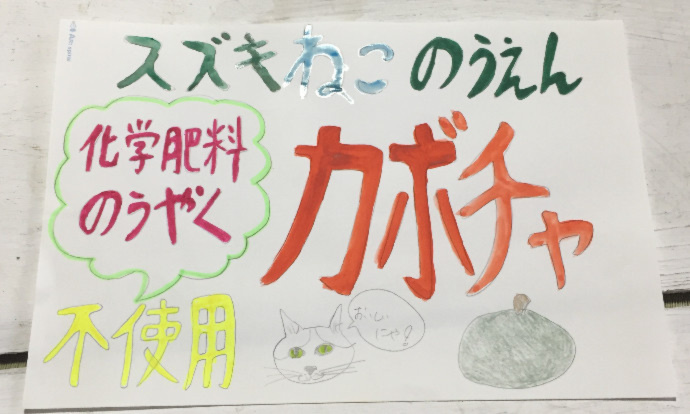 スズキねこのうえん
化学肥料
のうやく
不使用
カボチャ
おいしい
にゃ!